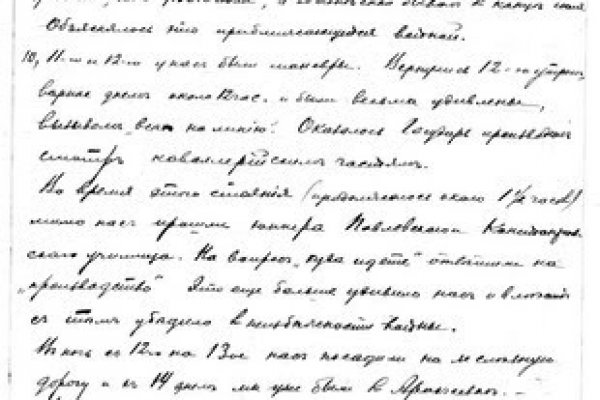 Объяснялось это приближающейся войной.
10, 11-го и 12-го у нас были маневры. Вернулись 12-го утром,
вернее днем около 12 час. и были весьма удивлены,
вызовом „всех на линию". Оказалось Государь производит
смотр кавалерийским частям.
Во время этого стояния (продолжалось около 1 1/2 часов)
мимо нас прошли юнкера Павловского
ского училища. На вопрос „куда идете" ответили на
„производство" Это еще больше удивило нас и
с тем убедило в неизбежности войны.
В ночь с 12-го на 13-ое нас посадили на железную
дорогу и 14 днем мы уже были в